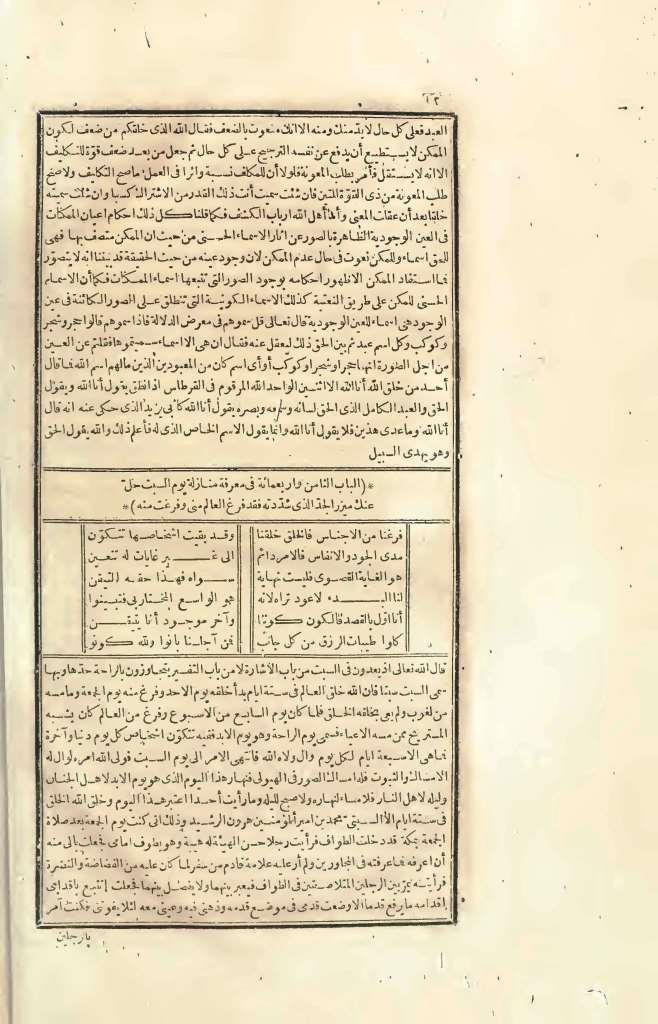 ١٢
العبد فعلى كل حال لابد منك ومنه الا انك منعوت بالضعف فقال الله الذى خلقكم من ضعف لكون
الممكن لا يستطيع أن يدفع عن نفسه الترجيح على كل حال ثم جعل من بعد ضعف قوة للتكليف
الا انه لا يستقل فأمر بطلب المعونة فلولا أن للمكلف نسبة واثرا فى العمل ما صح التكليف ولا صح
طلب المعونة من ذى القوة المتين فان شئت سميت أنت ذلك القدر من الاشتراك كسبا وان شئت سميته
خلقا بعد أن عقلت المعنى وأما أهل الله ارباب الكشف فكما قلنا كل ذلك احكام اعيان الممكنات
فى العين الوجودية الظاهرة بالصور عن اثار الاسماء الحسنى من حيث ان الممكن متصف بها فهى
للحق اسماء وللممكن نعوت فى حال عدم الممكن لان وجود عينه من حيث الحقيقة قد بينا انه لا يتصور
فما استفاد الممكن الا ظهور احكامه بوجود الصور التى تتبعها اسماء الممكنات فكما أن الاسماء
الحسنى للممكن على طريق النعتية كذلك الاسماء الكونية التى تنطلق على الصور الكائنة فى عين
الوجود هى اسماء للعين الوجودية قال تعالى قل سموهم فى معرض الدلالة فاذا سموهم قالوا حجر وشجر
وكوكب وكل اسم عبد ثم بين الحق ذلك ليعقل عنه فقال ان هى الا اسماء سميتموها فقلتم عن العين
من اجل الصورة انها حجر او شجر او كوكب أو أى اسم كان من المعبودين الذين ما لهم اسم الله فما قال
أحد من خلق الله أنا الله الا اثنين الواحد الله المرقوم فى القرطاس اذا نطق يقول أنا الله ويقول
الحق والعبد الكامل الذى الحق لسانه وسمعه وبصره يقول أنا الله كأبى يزيد الذى حكى عنه انه قال
أنا الله وما عدى هذين فلا يقول أنا الله وانما يقول الاسم الخاص الذى له فأعلم ذلك والله يقول الحق
وهو يهدى السبيل
*(الباب الثامن واربعمائة فى معرفة منازلة يوم السبت حل
عنك ميزر الجد الذى شددته فقد فرغ العالم منى وفرغت منه)*
فرغنا من الاجناس فالخلق خلقنا وقد بقيت اشخاصها تتكون
مدى الجود والانفاس فالامر دائم الى غير غايات له تتعين
هو الغاية القصوى فليست نهاية سواه فهذا حقه المتيقن
لنا البدء لا عود تراه لانه هو الواسع المختار بى فتبينوا
أنا اول بالقصد فالكون كوننا وآخر موجود أنا يتيقن
كلوا طيبات الرزق من كل جانب فمن آجلنا بانوا ولله كونوا
قال الله تعالى اذ يعدون فى السبت من باب الاشارة لا من باب التفسير يتجاوزون بالراحة حدها وبها
سمى السبت سبتا فان الله خلق العالم فى ستة ايام بدأ خلقه يوم الاحد وفرغ منه يوم الجمعة وما مسه
من لغوب ولم يعى بخلقه الخلق فلما كان يوم السابع من الاسبوع وفرغ من العالم كان يشبه
المستريح ممن مسه الاعياء فسمى يوم الراحة وهو يوم الابد ففيه تتكون اشخاص كل يوم دنيا وآخرة
فما هى الا سبعة ايام لكل يوم وال ولاه الله فانتهى الامر الى يوم السبت فولى الله امره لوال له
الامساك والثبوت فله امساك الصور فى الهيولى فنهار هذا اليوم الذى هو يوم الابد لاهل الجنان
وليله لاهل النار فلا مساء لنهاره ولا صبح لليله وما رأيت أحدا اعتبر هذا اليوم وخلق الله الخلق
فى ستة ايام الا السبتى محمد بن امير المؤمنين هرون الرشيد وذلك انى كنت يوم الجمعة بعد صلاة
الجمعة بمكة قد دخلت الطواف فرأيت رجلا حسن الهيئة له هيبة وهو يطوف امامى فجعلت بالى منه
أن اعرفه فما عرفته فى المجاورين ولم أر عليه علامة قادم من سفر لما كان عليه من الغضاضة والنضرة
فرأيته يمر بين الرجلين المتلاصقين فى الطواف فيعبر بينهما ولا يفصل بينهما فجعلت أتتبع باقدامى
اقدامه ما يرفع قدما الا وضعت قدمى فى موضع قدمه وذهنى فيه وعينى معه لئلا يفوتنى فكنت آمر
بالرجلين